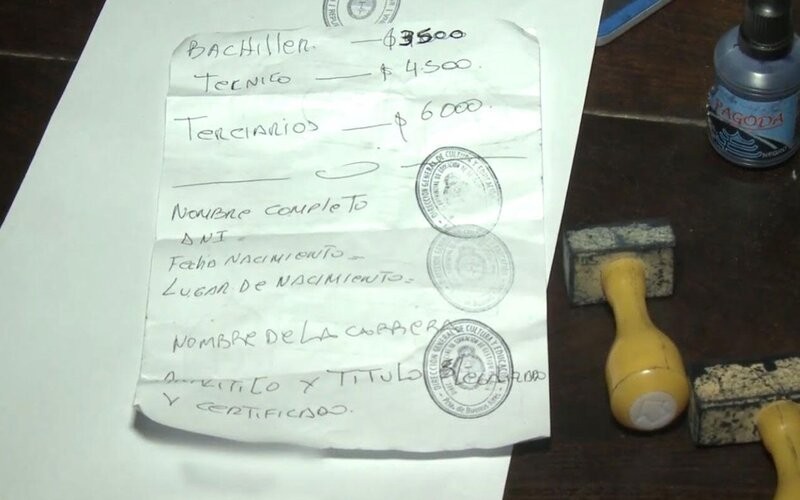 BACHILLER. — $3500
TECNICO — $ 4.500.
TERCIARIOS — $ 6000.
NOMBRE COMPLETO
DNI.
Fecha NACIMIENTO.
LUGAR DE NACIMIENTO.
NOMBRE DE LA CARRERA
Y TITULO
Y CERTIFICADO.
DIRECCION GENERAL DE CULTURA Y EDUCACION
DIRECCION GENERAL DE CULTURA Y EDUCACION
Pcia. de Buenos Aires
PAGODA
NEGRO